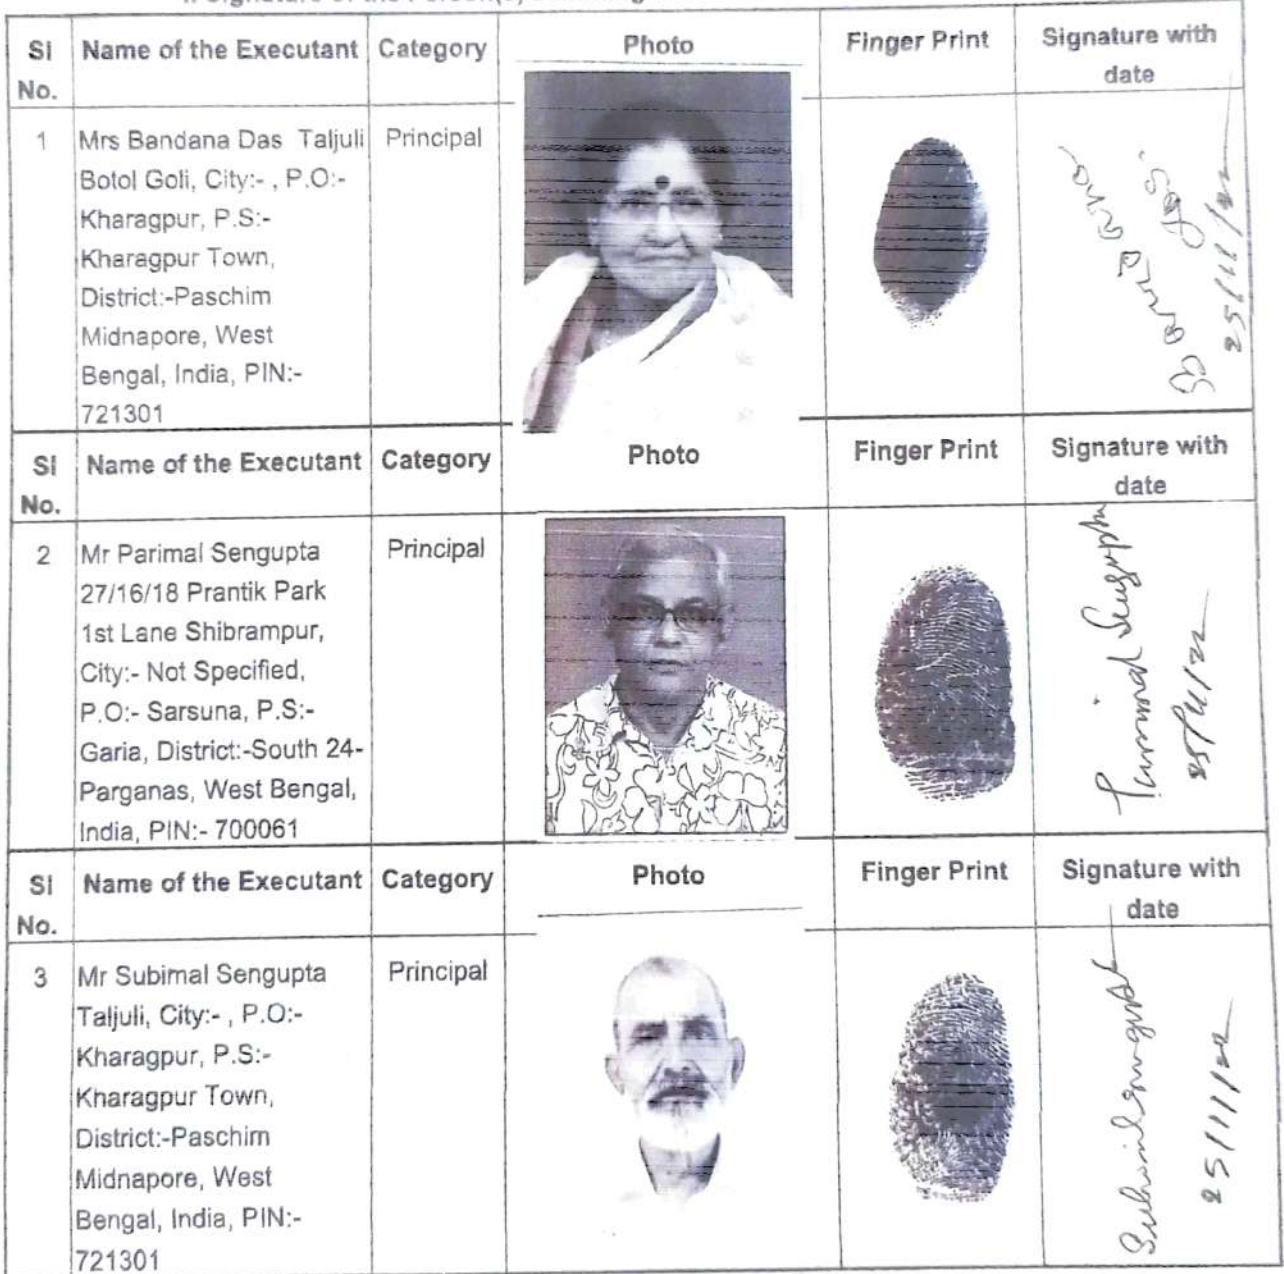 Sl No. Name of the Executant Category Photo Finger Print Signature with date
1 Mrs Bandana Das Taljuli Principal
Botol Goli, City:- , P.O:-
Kharagpur, P.S:-
Kharagpur Town,
District:-Paschim
Midnapore, West
Bengal, India, PIN:-
721301
25/11/22
Sl No. Name of the Executant Category Photo Finger Print Signature with date
2 Mr Parimal Sengupta Principal
27/16/18 Prantik Park
1st Lane Shibrampur,
City:- Not Specified,
P.O:- Sarsuna, P.S:-
Garia, District:-South 24-
Parganas, West Bengal,
India, PIN:- 700061
Parimal Sengupta
25/11/22
Sl No. Name of the Executant Category Photo Finger Print Signature with date
3 Mr Subimal Sengupta Principal
Taljuli, City:- , P.O:-
Kharagpur, P.S:-
Kharagpur Town,
District:-Paschim
Midnapore, West
Bengal, India, PIN:-
721301
Subimal Sengupta
25/11/22